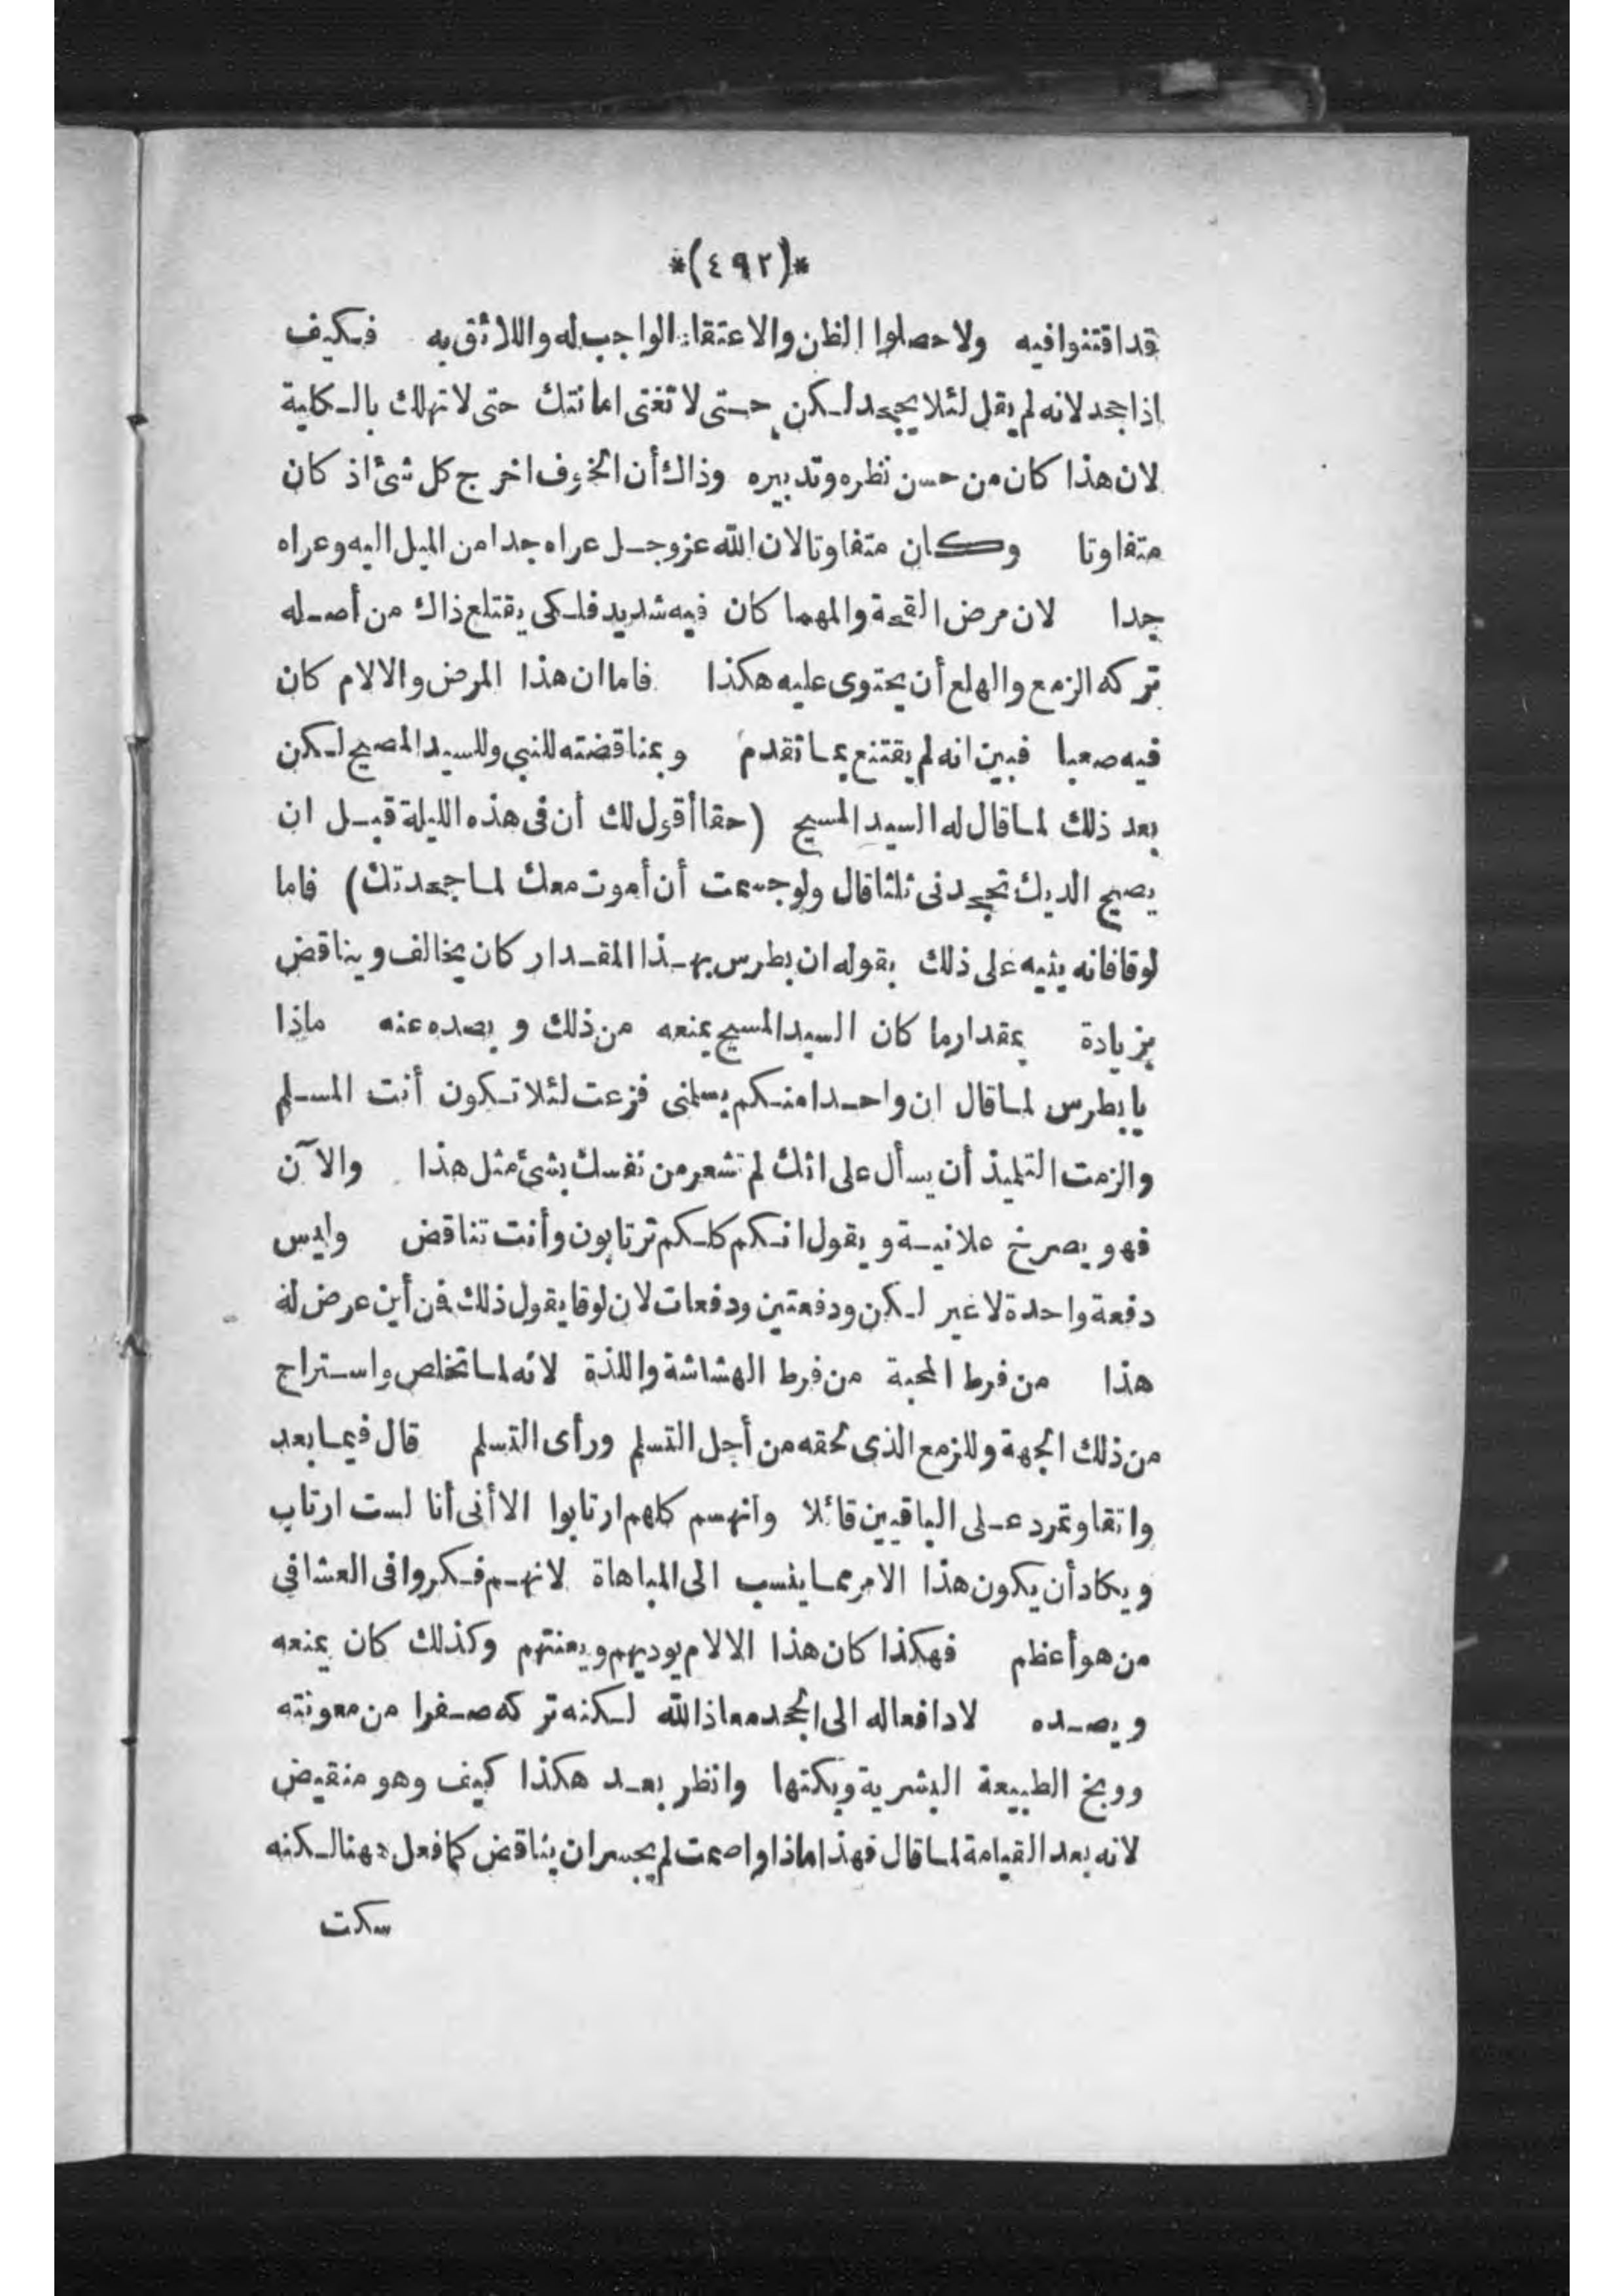 *(٤٩٢)*
قد اقتنوا فيه ولا حصلوا الظن والاعتقاد الواجب له واللائق به فكيف
اذا جحد لانه لم يقل لئلا يجحد لكن حتى لا تغنى امانتك حتى لا تهلك بالكلية
لان هذا كان من حسن نظره وتدبيره وذاك أن الخوف اخرج كل شئ اذ كان
متفاوتا وكان متفاوتا لان الله عز وجل عراه جدا من الميل اليه وعراه
جدا لان مرض القحة والمهما كان فيه شديد فلكى يقتلع ذاك من أصله
تركه الزمع والهلع أن يحتوى عليه هكذا فاما ان هذا المرض والالام كان
فيه صعبا فبين انه لم يقتنع بما تقدم وبمناقضته للنبي وللسيد المصيح لكن
بعد ذلك لما قال له السيد المسيح (حقا أقول لك أن فى هذه الليلة قبل ان
يصيح الديك تجحدنى ثلثا قال ولو جسمت أن أموت معك لما جحدتك) فاما
لوقا فانه ينبه على ذلك بقوله ان بطرس بهذا المقدار كان يخالف ويناقض
بزيادة بمقدار ما كان السيد المسيح يمنعه من ذلك ويصده عنه ماذا
يا بطرس لما قال ان واحدا منكم يسلمنى فزعت لئلا تكون أنت المسلم
والزمت التلميذ أن يسأل على انك لم تشعر من نفسك بشئ مثل هذا والآن
فهو يصرخ علانية ويقول انكم كلكم ترتابون وأنت تناقض وليس
دفعة واحدة لا غير لكن ودفعتين ودفعات لان لوقا يقول ذلك فمن أين عرض له
هذا من فرط المحبة من فرط الهشاشة واللذة لانه لما تخلص واستراح
من ذلك الجهة وللزمع الذى لحقه من أجل التسلم ورأى التسلم قال فيما بعد
واثقا وتمرد على الباقيين قائلا وانهم كلهم ارتابوا الا أنى أنا لست ارتاب
ويكاد أن يكون هذا الامر مما ينسب الى المباهاة لانهم فكروا فى العشا فى
من هو أعظم فهكذا كان هذا الالام يوديهم ويعنتهم وكذلك كان يمنعه
ويصده لا دافعا له الى الجحد معاذ الله لكنه تركه صفرا من معونته
ووبخ الطبيعة البشرية وبكتها وانظر بعد هكذا كيف وهو منقبض
لانه بعد القيامة لما قال فهذا ماذا واصمت لم يجسر ان يناقض كما فعل ههنا لكنه
سكت